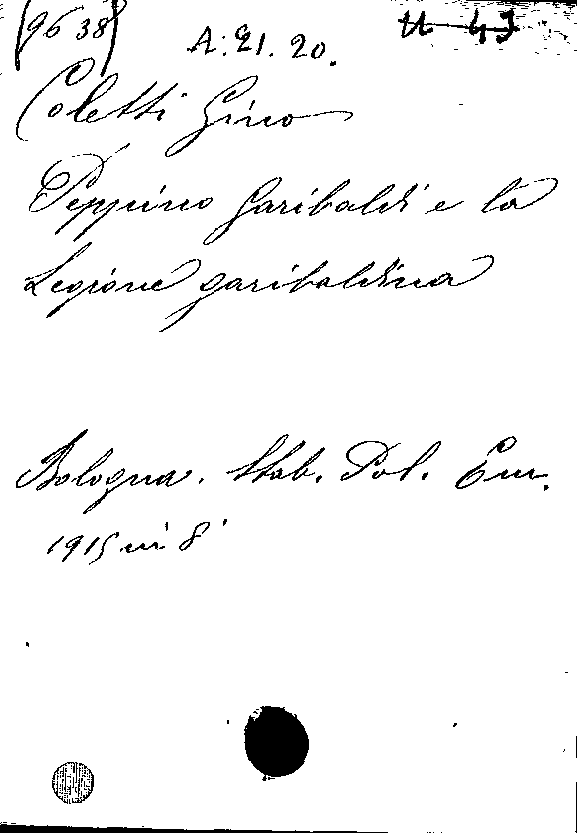 (9638) A. 21. 20. U 43
Coletti Gino
Peppino Garibaldi e la
Legione garibaldina
Bologna. Stab. Pol. Em.
1915 in 8°